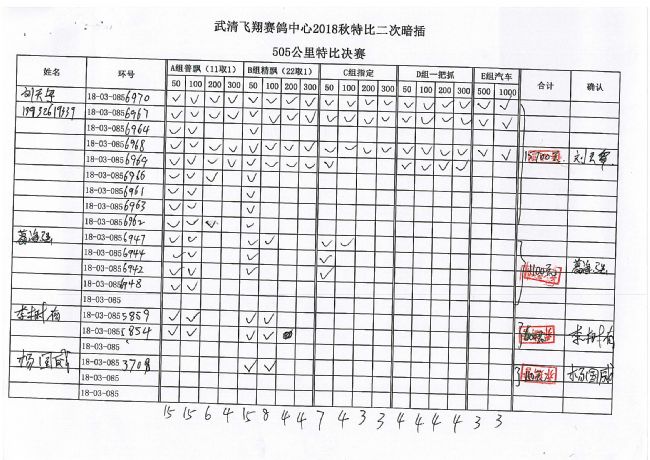 武清飞翔赛鸽中心2018秋特比二次暗插
505公里特比决赛
姓名 环号 A组普飘（11取1） B组精飘（22取1） C组指定 D组一把抓 E组汽车 合计 确认
50 100 200 300 50 100 200 300 50 100 200 300 50 100 200 300 500 1000
18-03-0856970 ✓ ✓ ✓ ✓ ✓ ✓ ✓ ✓ ✓ ✓ ✓ ✓ ✓ ✓ ✓ ✓ ✓ ✓
18-03-0856967 ✓ ✓ ✓ ✓ ✓ ✓ ✓ ✓ ✓ ✓ ✓ ✓ ✓ ✓ ✓ ✓ ✓ ✓
18-03-0856964 ✓ ✓ ✓
18-03-0856968 ✓ ✓ ✓ ✓ ✓ ✓ ✓ ✓ ✓ ✓ ✓ ✓ ✓ ✓ ✓ ✓ ✓ ✓
18-03-0856969 ✓ ✓ ✓ ✓ ✓ ✓ ✓ ✓ ✓ ✓ ✓ ✓ ✓
18-03-0856966 ✓ ✓ ✓ ✓
18-03-0856961 ✓ ✓ ✓
18-03-0856963 ✓ ✓ ✓
18-03-0856962 ✓ ✓ ✓ ✓
18-03-0856947 ✓ ✓ ✓ ✓ ✓ ✓
18-03-0856944 ✓ ✓ ✓ ✓
18-03-0856942 ✓ ✓ ✓ ✓
18-03-0856948 ✓ ✓
18-03-085
18-03-0855859 ✓ ✓ ✓ ✓
18-03-0855854 ✓ ✓ ✓ ✓
18-03-085
杨国威 18-03-0853708 ✓ ✓ 杨国威
18-03-085
18-03-085
15 15 6 4 15 8 4 4 7 4 3 3 4 4 4 4 3 3